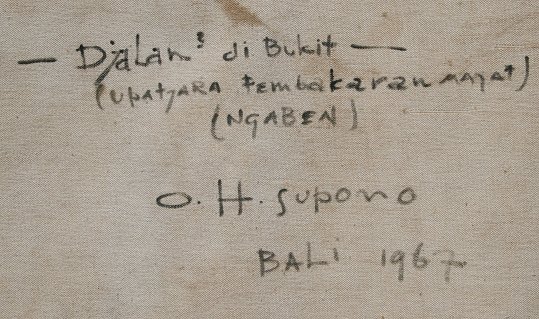 — Djalan² di Bukit —
(UpatjARA Pembakaran MAyat)
(NGABEN)
O. H. Supono
BALi 1967